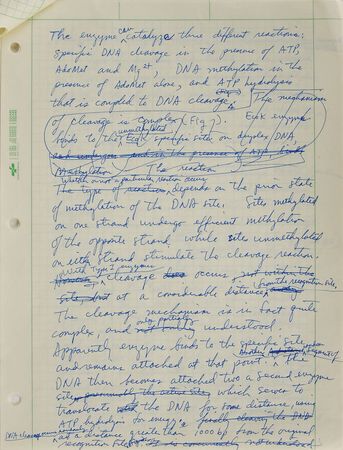 The enzyme can catalyze three different reactions:
Specific DNA cleavage in the presence of ATP,
AdoMet and Mg2+, DNA methylation in the
presence of AdoMet alone, and ATP hydrolysis
that is coupled to DNA cleavage. The mechanism
of cleavage is complex (Fig ). EcoK enzyme
binds to the unmethylated EcoK specific sites on duplex DNA
and in the presence of ATP,
Methylation The reaction
Whether or not a particular reaction occurs
The type of reaction depends on the prior state
of methylation of the DNA site. Sites methylated
on one strand undergo efficient methylation
of the opposite strand while sites unmethylated
on either strand stimulate the cleavage reaction.
with Type I enzyme
Cleavage occurs, not within the
site, but at a considerable distance from the recognition site.
The cleavage mechanism is in fact quite
complex, and only partially understood.
Apparently enzyme binds to the specific site,
and remains attached at that point. Another segment of the
DNA then becomes attached to a second enzyme
site which serves to
translocate the DNA for some distance, using
ATP hydrolysis for energy
DNA cleavage
at a distance greater than 1000 bp from the original
recognition site